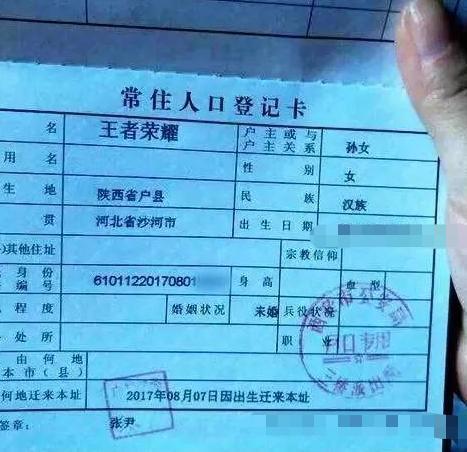 常住人口登记卡
名 王者荣耀 户主或与户主关系 孙女
用名 性别 女
生地 陕西省户县 民族 汉族
贯 河北省沙河市 出生日期
)其他住址 宗教信仰
身份编号 61011220170801 身高 血型
程度 婚姻状况 未婚 兵役状况
处所 职业
由何地
本市(县)
何地迁来本址 2017年08月07日因出生迁来本址
签章: 张尹